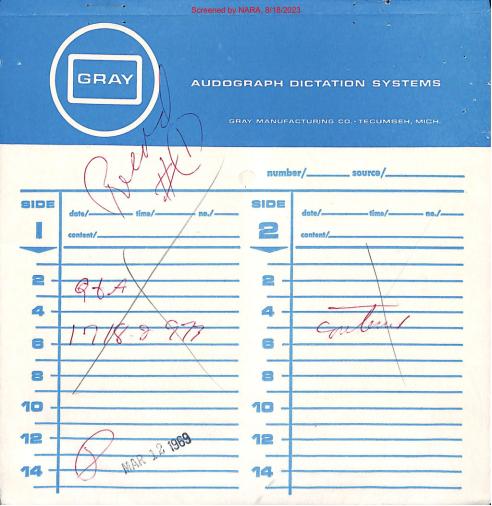 Screened by NARA, 8/18/2023
GRAY
AUDOGRAPH DICTATION SYSTEMS
GRAY MANUFACTURING CO.-TECUMSEH, MICH.
Record
number/ source/
SIDE 1
date/ time/ no./
content/
2
Q&A
4
6
8
10
12
14
MAR 12 1969
SIDE 2
date/ time/ no./
content/
2
4
6
8
10
12
14